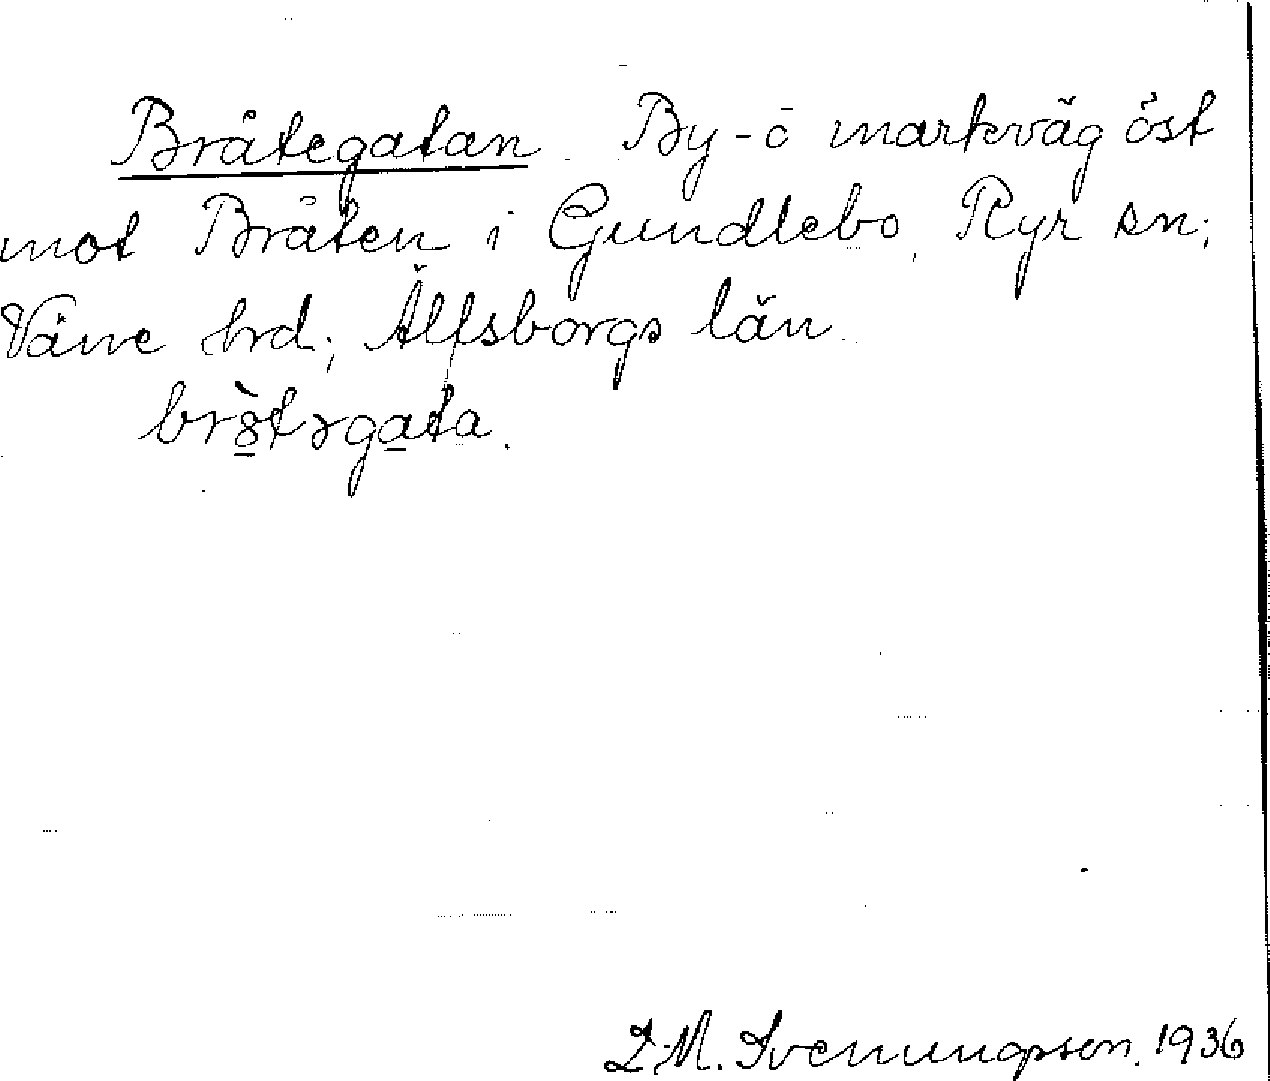 Bråtegatan. By- o markväg öst
mot Bråten i Gundlebo, Ryr sn;
Väne hrd; Älfsborgs län.
bròtəgata.
L.M. Svenungsson. 1936